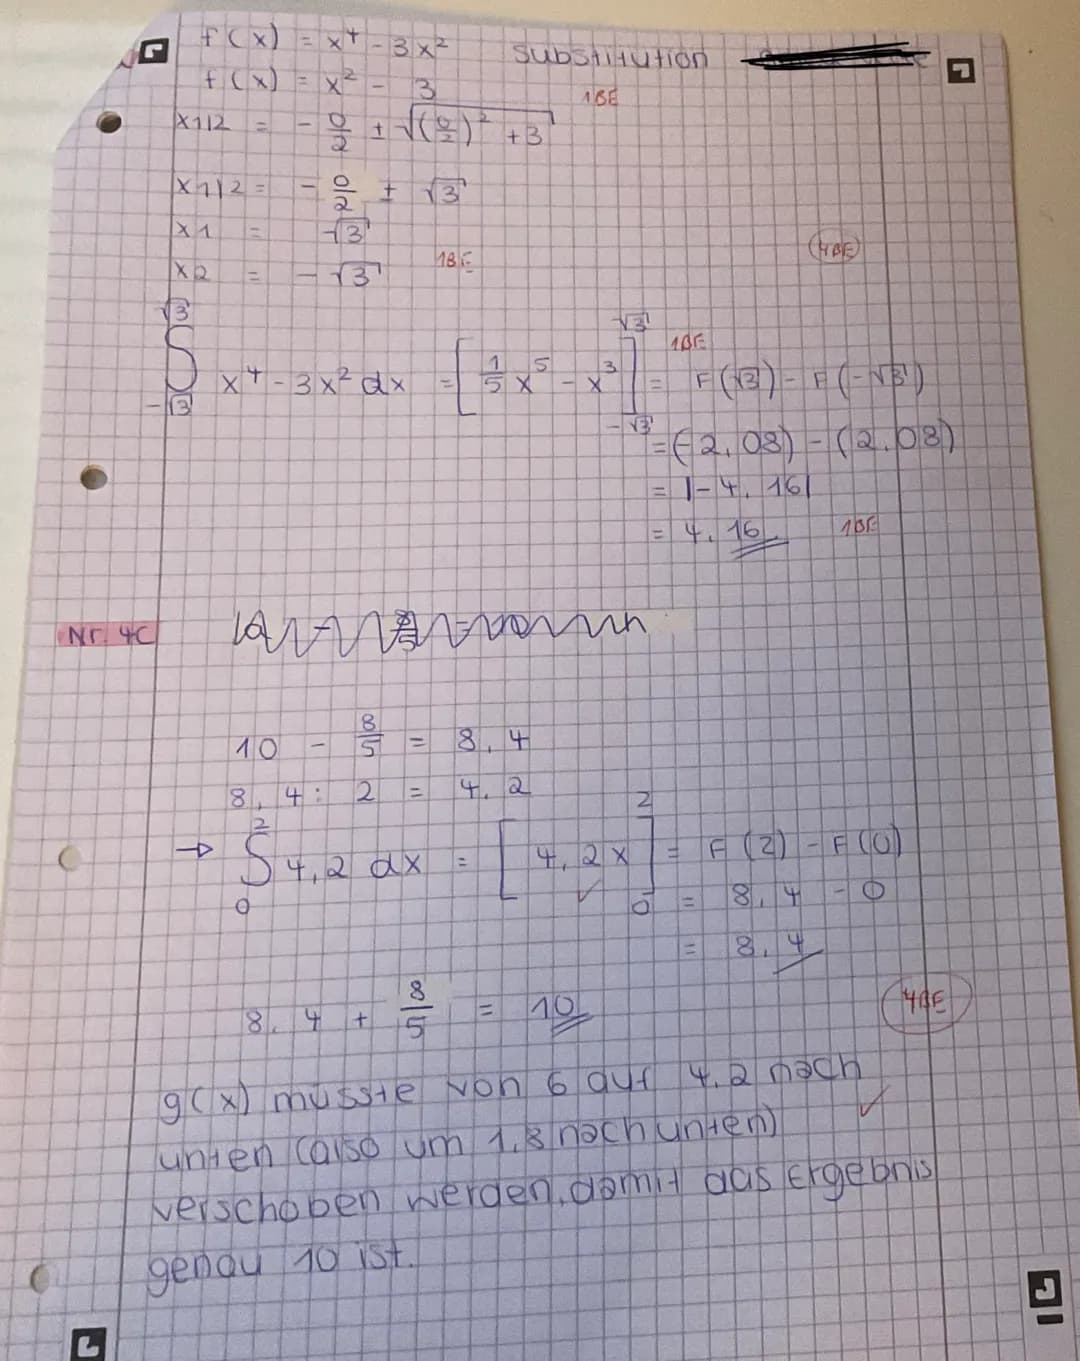 f(x) = x⁴ - 3x² Substitution
f(x) = x² - 3 1BE
x1/2 = - 0/2 ± √((0/2)² + 3)
x1/2 = - 0/2 ± √3
x1 = √3
x2 = - √3 1BE 4BE
∫_{-√3}^{√3} x⁴ - 3x² dx = [1/5 x⁵ - x³]_{-√3}^{√3} = F(√3) - F(-√3) 1BE
= (-2,08) - (2,08)
= |-4,16|
= 4,16 1BE
Nr. 4c
10 - 8/5 = 8,4
8,4 : 2 = 4,2
→ ∫_0^2 4,2 dx = [4,2x]_0^2 = F(2) - F(0)
✓ = 8,4 - 0
= 8,4
8,4 + 8/5 = 10 4BE
g(x) müsste von 6 auf 4,2 nach
unten (also um 1,8 nach unten) ✓
verschoben werden, damit das Ergebnis
genau 10 ist.